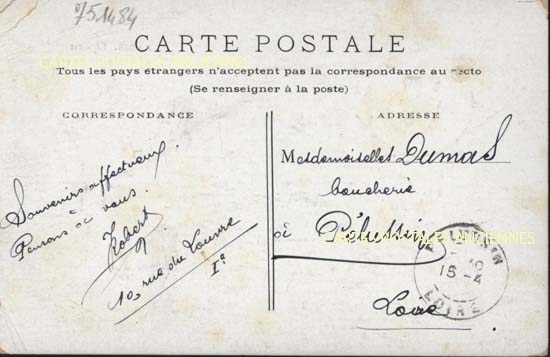 751484
CARTE POSTALE
CARTES POSTALES ANCIENNES
Tous les pays étrangers n'acceptent pas la correspondance au recto
(Se renseigner à la poste)
CORRESPONDANCE
Souvenirs affectueux
à
Pensons à vous.
Robert
10, rue du Louvre
1º
ADRESSE
Mesdemoiselles Dumas
boucherie
à Pélussin
CARTES POSTALES ANCIENNES
Loire
PELUSSIN
15 -4
LOIRE